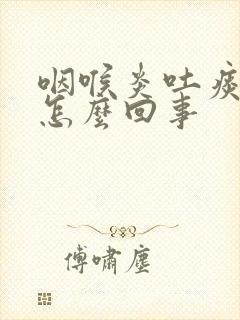 咽喉炎吐痰
怎麼回事
傅嘯塵